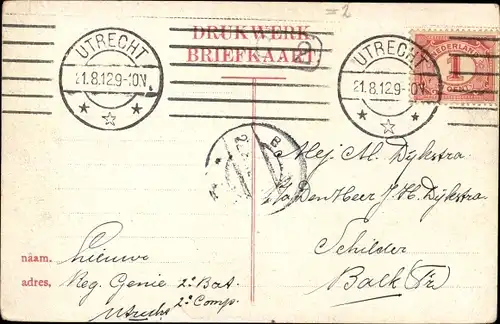 = 2
DRUKWERK
BRIEFKAART
2
UTRECHT
21.8.12.9-10V.
UTRECHT
21.8.12.9-10V.
NEDERLAND
1
CENT
Mej. M. Dykstra
Den Heer J. H. Dykstra.
Schilder
Balk (Fr)
naam.
adres,
Reg. Genie 2e Bat.
Utrecht 2e Comp.